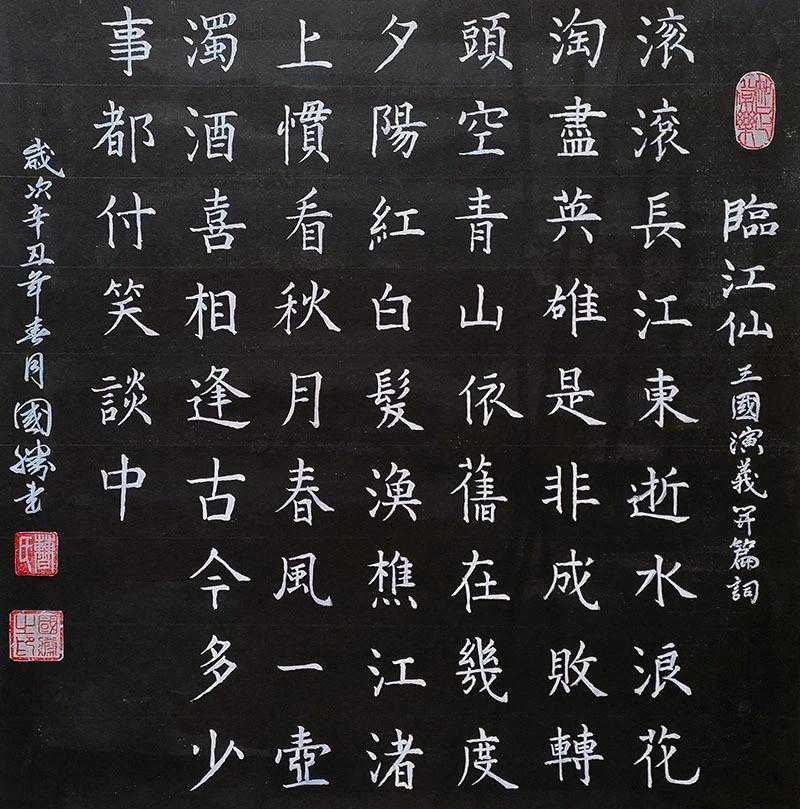 臨江仙 三國演義開篇詞
滚滚長江東逝水浪花
淘盡英雄是非成敗轉
頭空青山依舊在幾度
夕陽紅白髮漁樵江渚
上慣看秋月春風一壺
濁酒喜相逢古今多少
事都付笑談中
歲次辛丑年春月國勝書